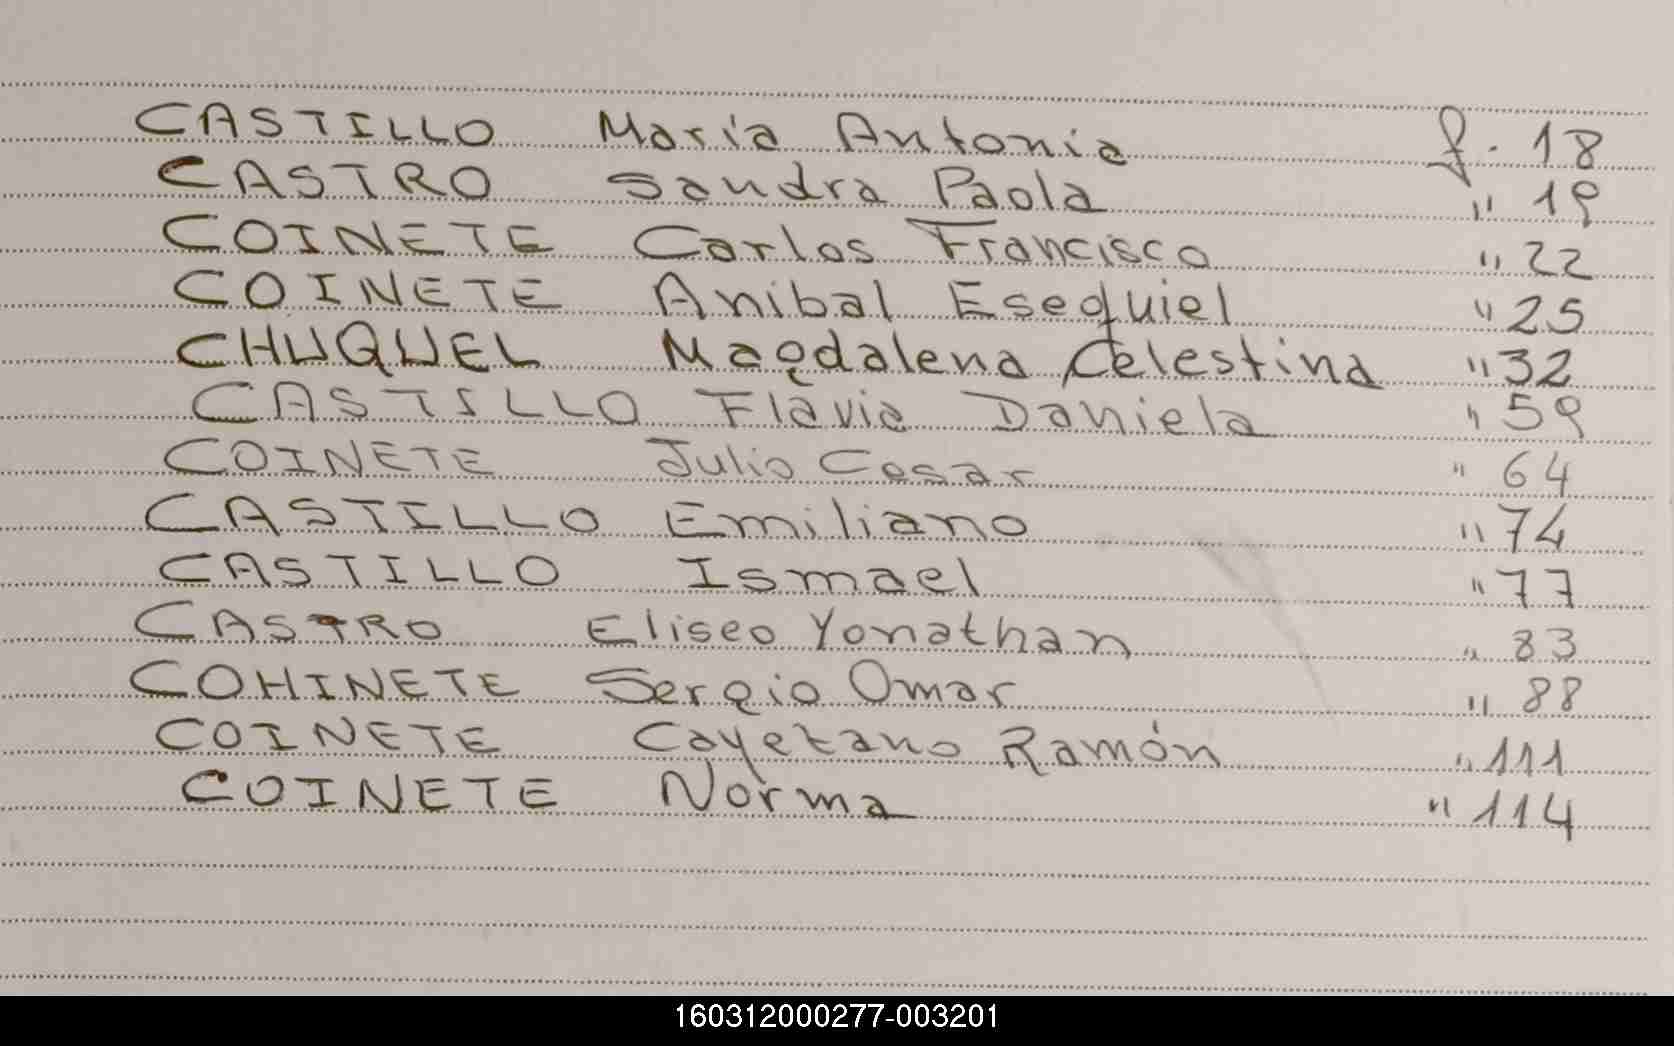 CASTILLO María Antonia f. 18
CASTRO Sandra Paola " 19
COINETE Carlos Francisco " 22
COINETE Anibal Esequiel " 25
CHUQUEL Magdalena Celestina " 32
CASTILLO Flavia Daniela " 59
COINETE Julio Cesar " 64
CASTILLO Emiliano " 74
CASTILLO Ismael " 77
CASTRO Eliseo Yonathan " 83
COHINETE Sergio Omar " 88
COINETE Cayetano Ramón " 111
COINETE Norma " 114
160312000277-003201